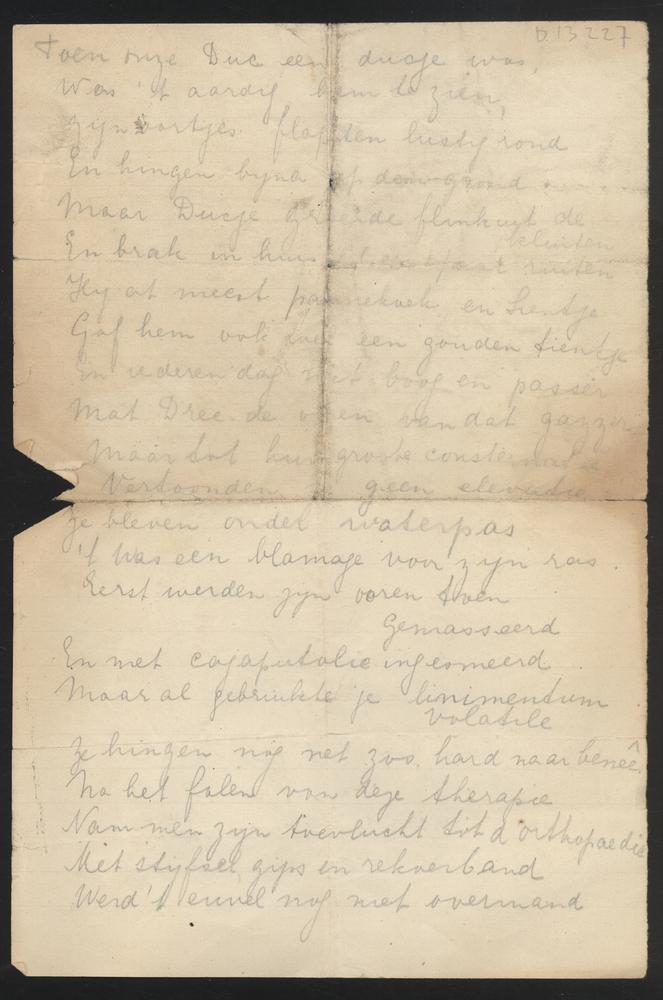 D.13227
Toen onze Duc een ducje was,
Was 't aardig hem te zien,
zijn oortjes flapten lustig rond
En hingen byna op den grond
Maar Ducje groeide flink uit de
kluiten
En brak in huis ruiten
Hy at meest pannekoek en Sientje
Gaf hem ook een gouden tientje
En iederen dag met boog en passer
Mat Dree de ooren van dat gazzer
Maar tot hun groote consternatie
Vertoonden geen elevatie
Ze bleven onder waterpas
't Was een blamage voor zyn ras.
Eerst werden zyn ooren toen
Gemasseerd
En met cajaputolie ingesmeerd
Maar al gebruikte je linimentum
volatile
Ze hingen nog net zoo hard naar beneê.
Na het falen van deze therapie
Nam men zyn toevlucht tot d'orthopaedie
Met styfsel, gips en rekverband
Werd 't euvel nog niet overmand